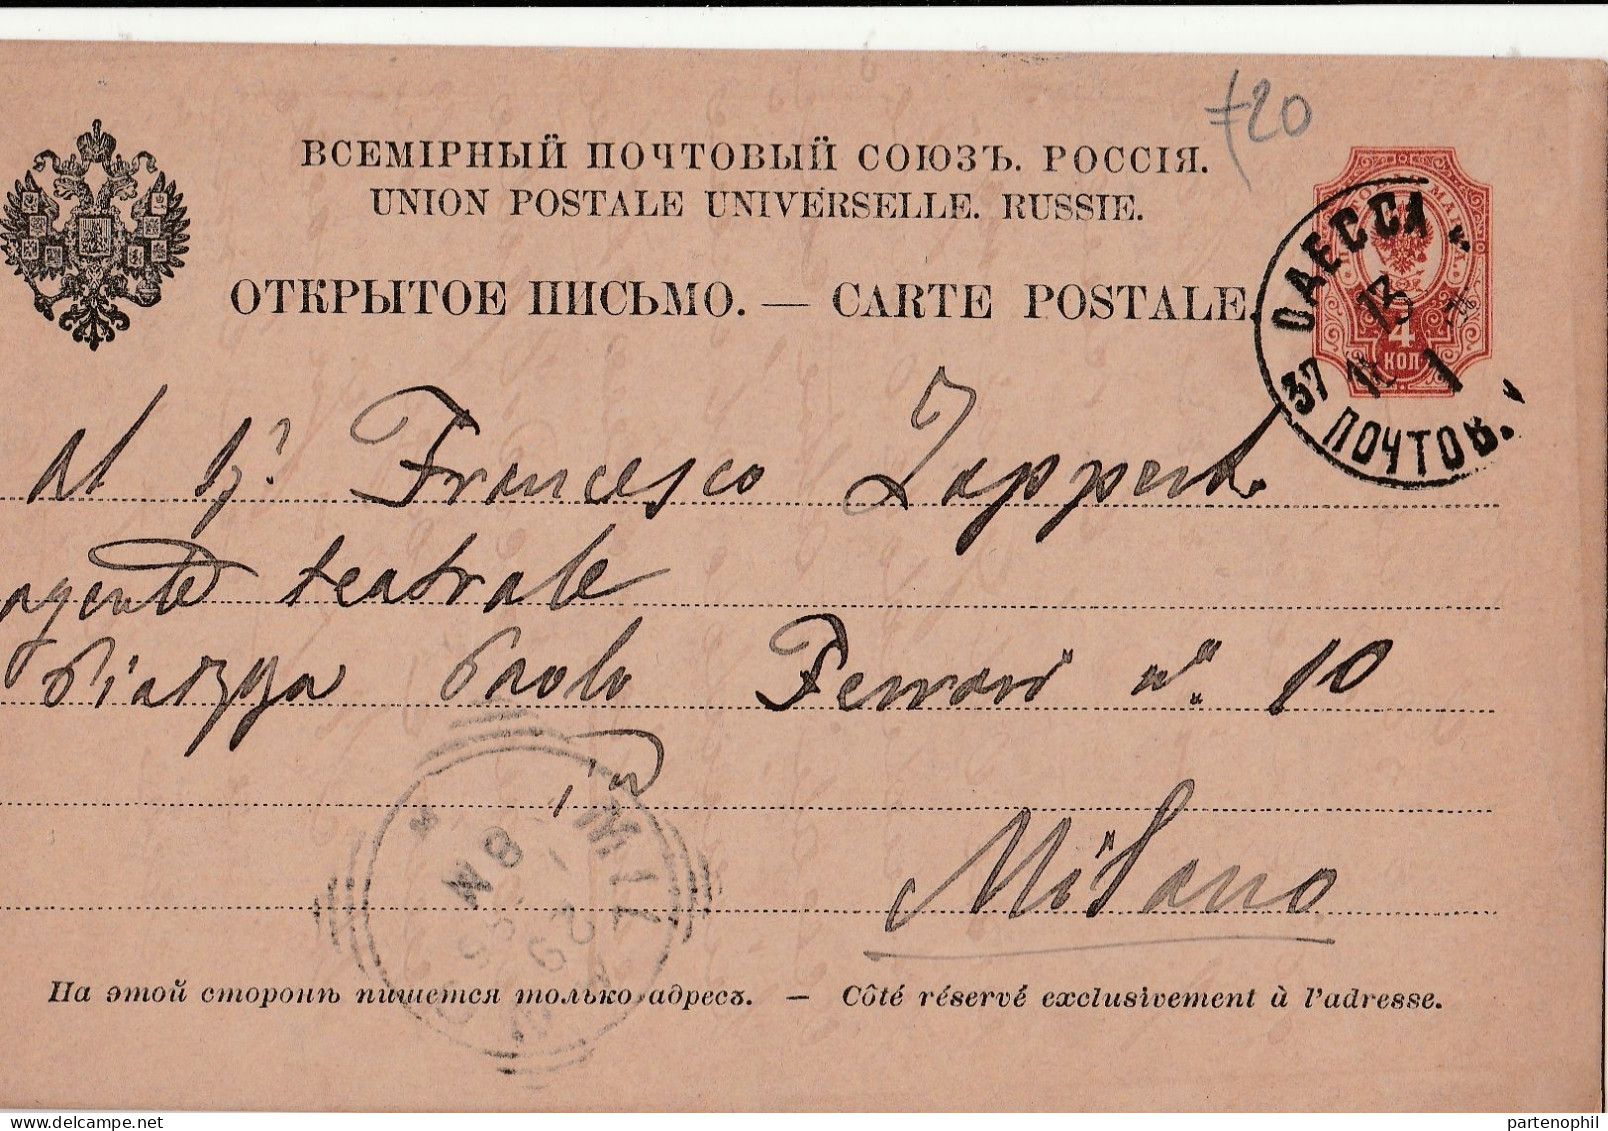 720
ВСЕМІРНЫЙ ПОЧТОВЫЙ СОЮЗЪ. РОССІЯ.
UNION POSTALE UNIVERSELLE. RUSSIE.
ОТКРЫТОЕ ПИСЬМО. — CARTE POSTALE.
4
КОП
ОДЕССА
13
1
37 ПОЧТОВ.
Al Sr. Francesco Zappert
agente teatrale
Piazza Paolo Ferrari no. 10
in
Milano
MIL
На этой сторонѣ пишется только адресъ. — Côté réservé exclusivement à l'adresse.
partenophil